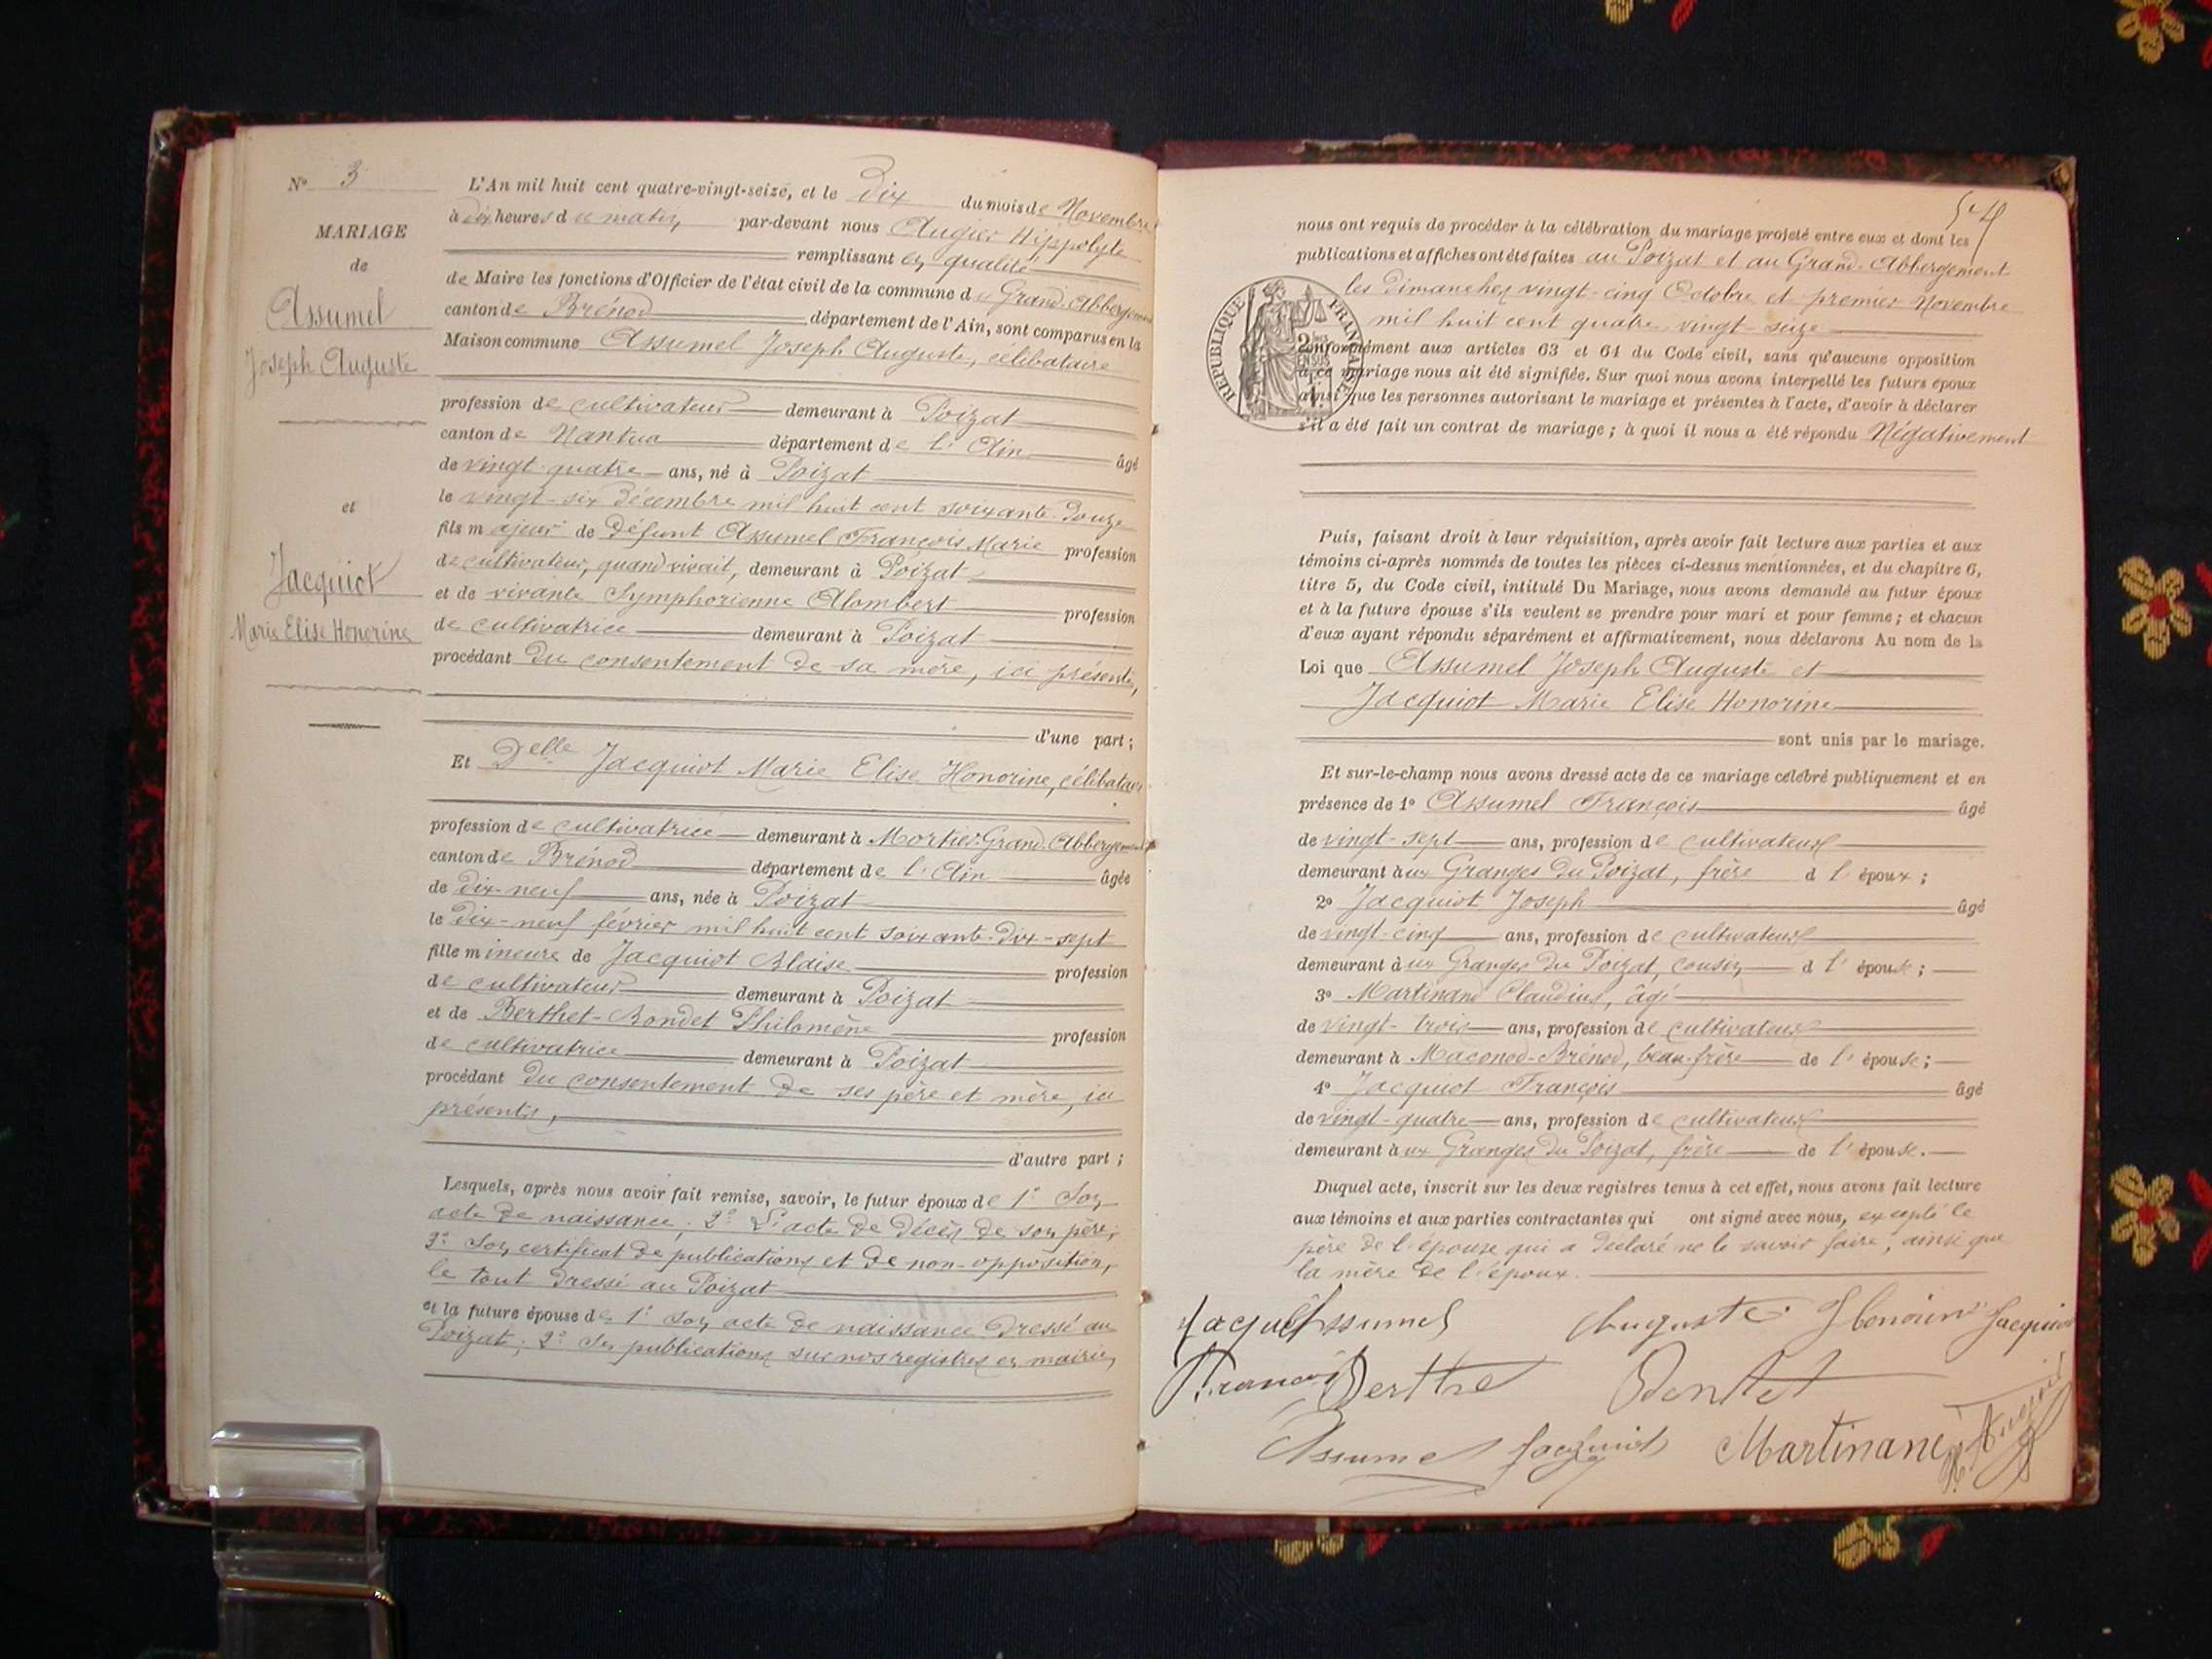 N° 3
MARIAGE
de
Assumel
Joseph Auguste
et
Jacquiot
Marie Elise Honorine
L'An mil huit cent quatre-vingt-seize, et le Dix du mois de Novembre
à dix heures du matin par-devant nous Augier Hippolyte
remplissant en qualité
de Maire les fonctions d'Officier de l'état civil de la commune du Grand-Abbergement
canton de Brénod département de l'Ain, sont comparus en la
Maison commune Assumel Joseph Auguste, célibataire
profession de cultivateur demeurant à Poizat
canton de Nantua département de l'Ain âgé
de vingt-quatre ans, né à Poizat
le vingt-six Décembre mil huit cent soixante-douze
fils majeur de Défunt Assumel François Marie profession
de cultivateur, quand vivait, demeurant à Poizat
et de vivante Symphorienne Alombert profession
de cultivatrice demeurant à Poizat
procédant du consentement de sa mère, ici présente,
d'une part;
Et Delle Jacquiot Marie Elise Honorine, célibataire
profession de cultivatrice demeurant à Mortier-Grand-Abbergement
canton de Brénod département de l'Ain âgée
de dix-neuf ans, née à Poizat
le dix-neuf février mil huit cent soixante-dix-sept
fille mineure de Jacquiot Blaise profession
de cultivateur demeurant à Poizat
et de Berthet-Bondet Philomène profession
de cultivatrice demeurant à Poizat
procédant du consentement de ses père et mère, ici
présents,
d'autre part;
Lesquels, après nous avoir fait remise, savoir, le futur époux de 1° Son
acte de naissance; 2° L'acte de décès de son père;
3° Son certificat de publications et de non-opposition,
le tout dressé au Poizat
et la future épouse de 1° Son acte de naissance dressé au
Poizat; 2° Ses publications sur nos registres en mairie,
54
nous ont requis de procéder à la célébration du mariage projeté entre eux et dont les
publications et affiches ont été faites au Poizat et au Grand-Abbergement
les dimanches vingt-cinq Octobre et premier Novembre
mil huit cent quatre-vingt-seize
REPUBLIQUE FRANÇAISE
2/10es
EN SUS
conformément aux articles 63 et 64 du Code civil, sans qu'aucune opposition
à ce mariage nous ait été signifiée. Sur quoi nous avons interpellé les futurs époux
ainsi que les personnes autorisant le mariage et présentes à l'acte, d'avoir à déclarer
s'il a été fait un contrat de mariage; à quoi il nous a été répondu Négativement
Puis, faisant droit à leur réquisition, après avoir fait lecture aux parties et aux
témoins ci-après nommés de toutes les pièces ci-dessus mentionnées, et du chapitre 6,
titre 5, du Code civil, intitulé Du Mariage, nous avons demandé au futur époux
et à la future épouse s'ils veulent se prendre pour mari et pour femme; et chacun
d'eux ayant répondu séparément et affirmativement, nous déclarons Au nom de la
Loi que Assumel Joseph Auguste et
Jacquiot Marie Elise Honorine
sont unis par le mariage.
Et sur-le-champ nous avons dressé acte de ce mariage célébré publiquement et en
présence de 1° Assumel François âgé
de vingt-sept ans, profession de cultivateur
demeurant aux Granges du Poizat, frère d l'époux;
2° Jacquiot Joseph âgé
de vingt-cinq ans, profession de cultivateur
demeurant aux Granges du Poizat, cousin d l'épouse;
3° Martinand Claudius, âgé
de vingt-trois ans, profession de cultivateur
demeurant à Maconod-Brénod, beau-frère de l'épouse;
4° Jacquiot François âgé
de vingt-quatre ans, profession de cultivateur
demeurant aux Granges du Poizat, frère de l'épouse.
Duquel acte, inscrit sur les deux registres tenus à cet effet, nous avons fait lecture
aux témoins et aux parties contractantes qui ont signé avec nous, excepté le
père de l'épouse qui a déclaré ne le savoir faire, ainsi que
la mère de l'époux.
Assumel Auguste Honorine Jacquiot
François Berthe Bontet
Assumel Jacquiot Martinand H. Augier